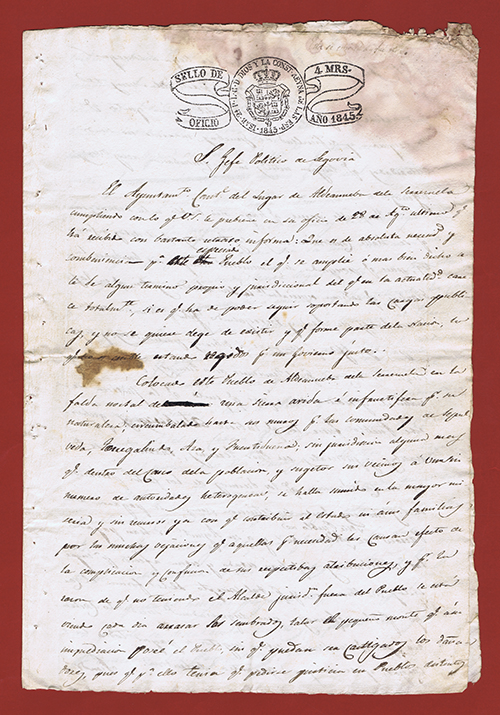 SELLO DE OFICIO
ISAB. 2ª P. L. G. D DIOS Y LA CONST. REYNA DE LAS ESP.
1845
4. MRS. AÑO 1845.
S. Jefe Politico de Segovia
El Ayuntamto Consl del Lugar de Aldeanueba dela Serrezuela
cumpliendo con lo qe V.S. le en su oficio de 28 de Agto ultimo qe
há recibido con bastante informa: Que es de absoluta y
combeniencia pa este Pueblo el qe se amplie ó mas bien dicho se
le dé algun termino propio y jurisdicional del qe en la actualidad carece
totalmte, si es qe ha de poder seguir soportando las Cargas publi
cas, y no se quiere deje de existir y qe forme parte dela
estando p. un govierno justo.
Colocado este Pueblo de Aldeanueba dela Serrezuela en la
falda de una Sierra arida é infructifera pr su
naturaleza, circundado pr las comunidades de Sepul
veda, Aza, y Fuentidueña, sin jurisdicion alguna mas
qe dentro del Casco dela poblacion, y sugetos sus vecinos á
numero de autoridades heterogeneas, se halla sumido en la mayor mi
seria y sin recursos ya con qe contribuir al Estado ni á sus familias
por las muchas vejaciones qe aquellas pr necesidad les Causan efecto de
la complicacion y Confusion de sus respectibas atribuciones, y pr la
razon de qe no teniendo el Alcalde jurisdn fuera del Pueblo se está
viendo cada dia arrasar los sembrados, talar el pequeño monte qe á su
posee el Pueblo, sin qe puedan ser Castigados los daña
dores, pues qe pa ello tenia qe pedirse justicia en Pueblos distantes